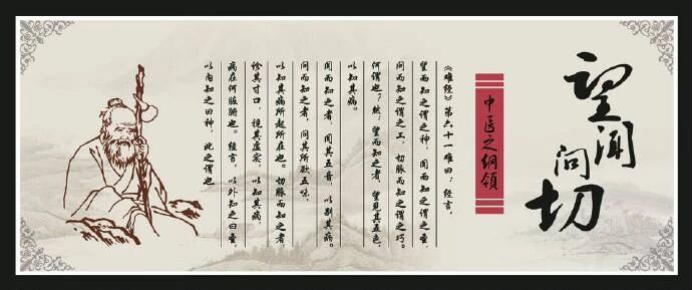 望闻问切
中医之纲领
《难经》第六十一难曰：经言，
望而知之谓之神，闻而知之谓之圣，
问而知之谓之工，切脉而知之谓之巧。
何谓也？然，望而知之者，望见其五色，
以知其病。
闻而知之者，闻其五音，以别其病。
问而知之者，问其所欲五味，
以知其病所起所在也。切脉而知之者，
诊其寸口，视其虚实，以知其病，
病在何脏腑也。经言，以外知之曰圣，
以内知之曰神，此之谓也